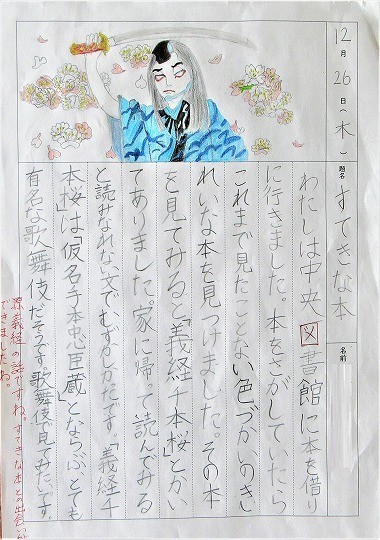 12月26日(木)
題名 すてきな本
名前
わたしは中央図書館に本を借り
に行きました。本をさがしていたら
これまで見たことない色づかいのき
れいな本を見つけました。その本
を見てみると「義経千本桜」とかい
てありました。家に帰って読んでみる
と読みなれない文でむずかしかたです。「義経千
本桜」は「仮名手本忠臣蔵」とならぶとても
有名な歌舞伎だそうです。歌舞伎で見てみたいです。
源義経の話ですね。すてきな本との出会いが
できましたね。